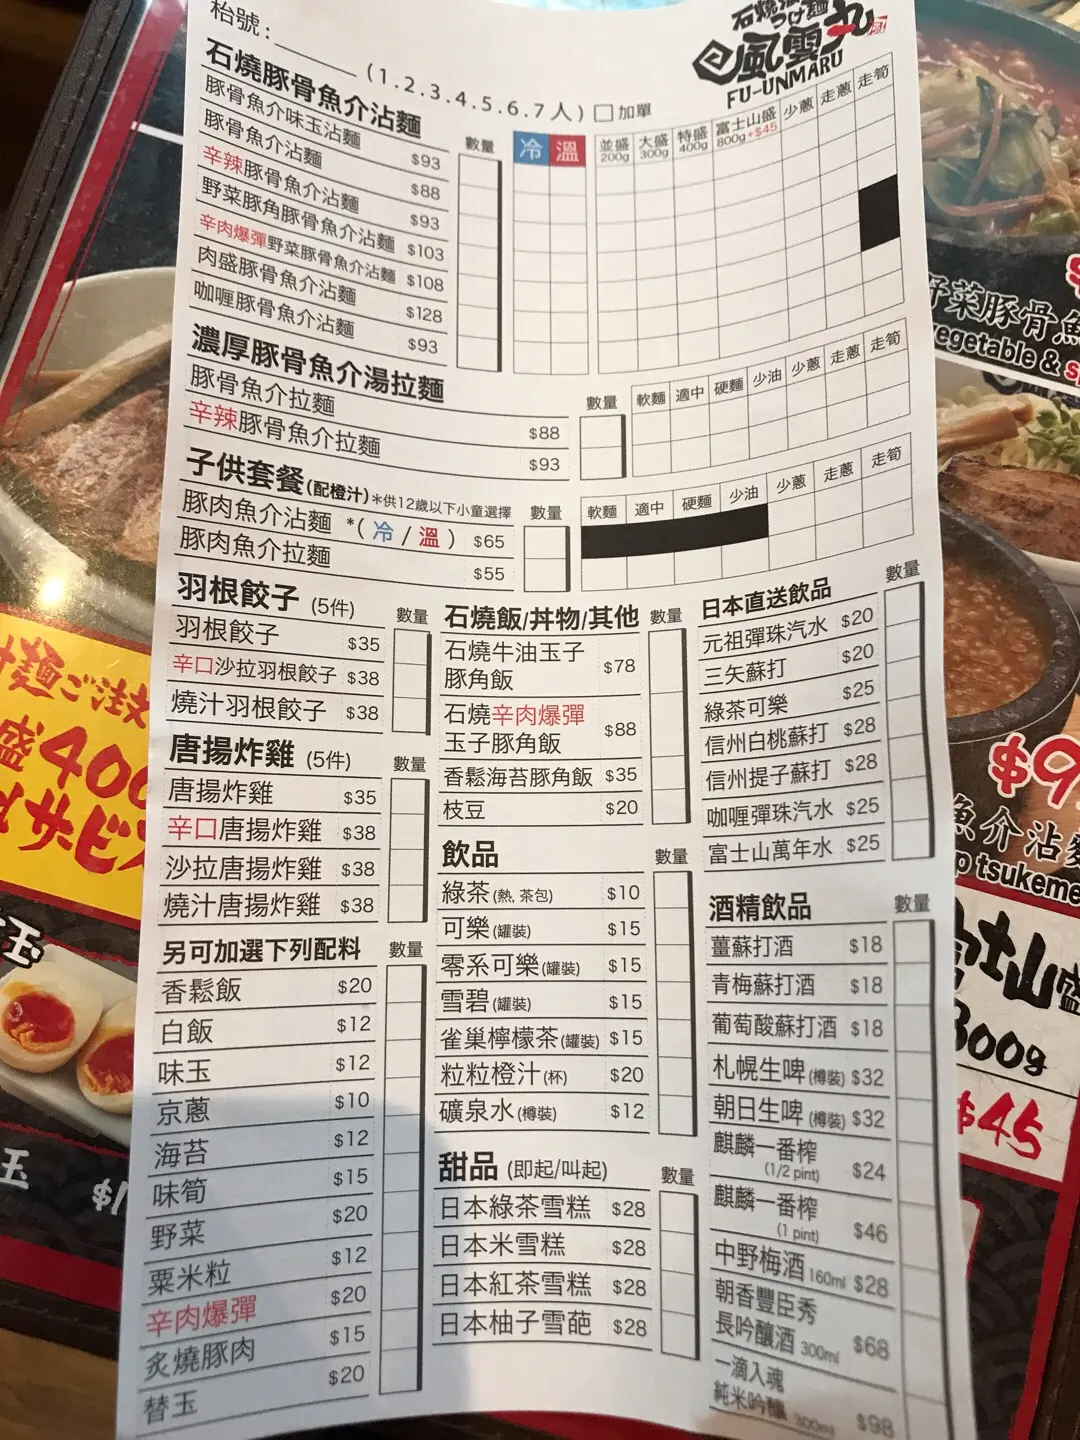 枱號：
(1.2.3.4.5.6.7人) 加單
石燒
つけ麵
風雲丸
FU-UNMARU
石燒豚骨魚介沾麵 數量 冷 溫 並盛 200g 大盛 300g 特盛 400g 富士山盛 800g +$45 少蔥 走蔥 走筍
豚骨魚介味玉沾麵 $93
豚骨魚介沾麵 $88
辛辣豚骨魚介沾麵 $93
野菜豚角豚骨魚介沾麵 $103
辛肉爆彈野菜豚骨魚介沾麵 $108
肉盛豚骨魚介沾麵 $128
咖喱豚骨魚介沾麵 $93
濃厚豚骨魚介湯拉麵 數量 軟麵 適中 硬麵 少油 少蔥 走蔥 走筍
豚骨魚介拉麵 $88
辛辣豚骨魚介拉麵 $93
子供套餐(配橙汁)*供12歲以下小童選擇 數量 軟麵 適中 硬麵 少油 少蔥 走蔥 走筍
豚肉魚介沾麵 *(冷/溫) $65
豚肉魚介拉麵 $55
羽根餃子 (5件) 數量
羽根餃子 $35
辛口沙拉羽根餃子 $38
燒汁羽根餃子 $38
唐揚炸雞 (5件) 數量
唐揚炸雞 $35
辛口唐揚炸雞 $38
沙拉唐揚炸雞 $38
燒汁唐揚炸雞 $38
另可加選下列配料 數量
香鬆飯 $20
白飯 $12
味玉 $12
京蔥 $10
海苔 $12
味筍 $15
野菜 $20
粟米粒 $12
辛肉爆彈 $20
炙燒豚肉 $15
替玉 $20
石燒飯/丼物/其他 數量
石燒牛油玉子
豚角飯 $78
石燒辛肉爆彈
玉子豚角飯 $88
香鬆海苔豚角飯 $35
枝豆 $20
飲品 數量
綠茶(熱, 茶包) $10
可樂(罐裝) $15
零系可樂(罐裝) $15
雪碧(罐裝) $15
雀巢檸檬茶(罐裝) $15
粒粒橙汁(杯) $20
礦泉水(樽裝) $12
甜品 (即起/叫起) 數量
日本綠茶雪糕 $28
日本米雪糕 $28
日本紅茶雪糕 $28
日本柚子雪葩 $28
日本直送飲品 數量
元祖彈珠汽水 $20
三矢蘇打 $20
綠茶可樂 $25
信州白桃蘇打 $28
信州提子蘇打 $28
咖喱彈珠汽水 $25
富士山萬年水 $25
酒精飲品 數量
薑蘇打酒 $18
青梅蘇打酒 $18
葡萄酸蘇打酒 $18
札幌生啤(樽裝) $32
朝日生啤(樽裝) $32
麒麟一番榨
(1/2 pint) $24
麒麟一番榨
(1 pint) $46
中野梅酒 160ml $28
朝香豐臣秀
長吟釀酒 300ml $68
一滴入魂
純米吟釀 300ml $98
麵ご注文
盛400
サービス
玉
玉
$1
野菜豚骨魚
vegetable & s
$9
魚介沾麵
p tsukeme
富士山盛
800g
$45